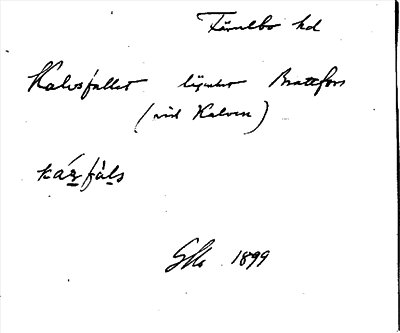 Färnebo hd
Kalvsfallet lägenhet Brattfors
(vid Kalven)
kářfáls
1899